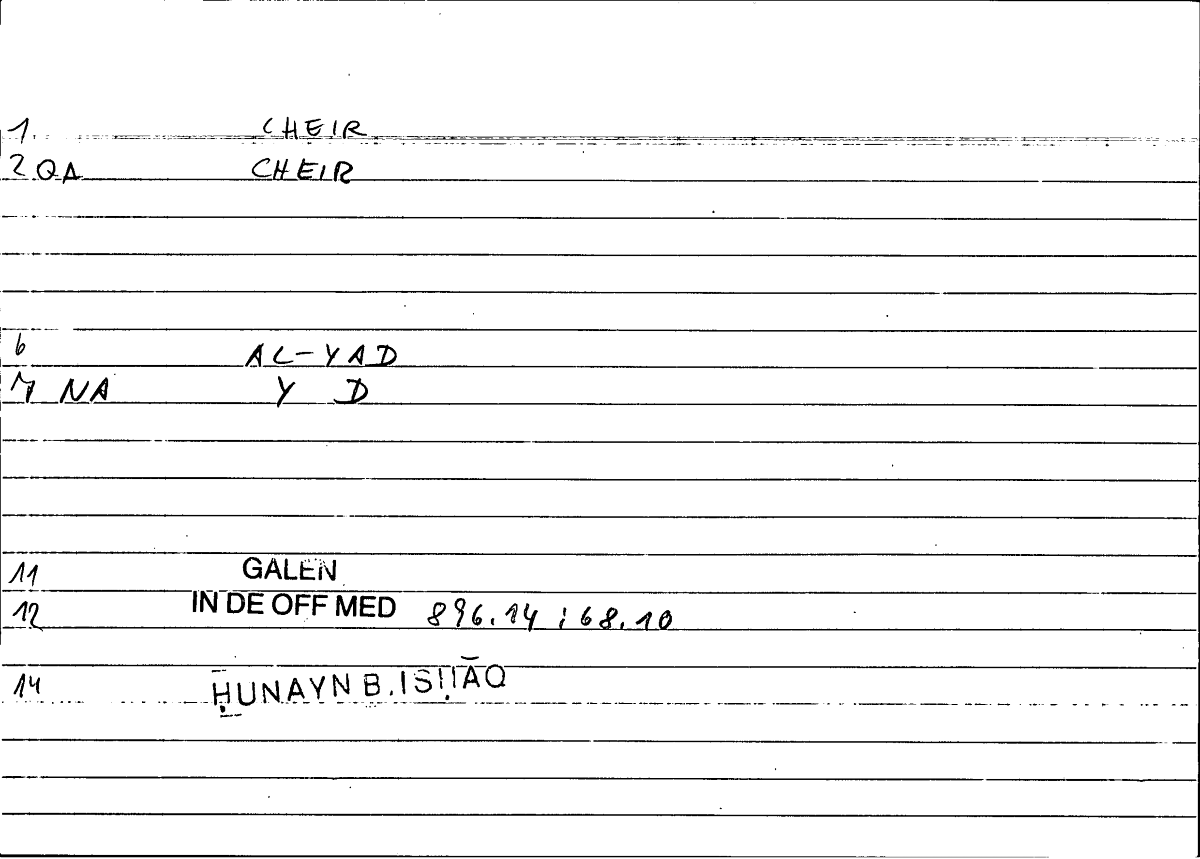 1. CHEIR
2 QA CHEIR
6 AL-YAD
7 NA Y D
11 GALEN
12 IN DE OFF MED 896.14 ; 68.10
14 ḤUNAYN B. ISḤĀQ